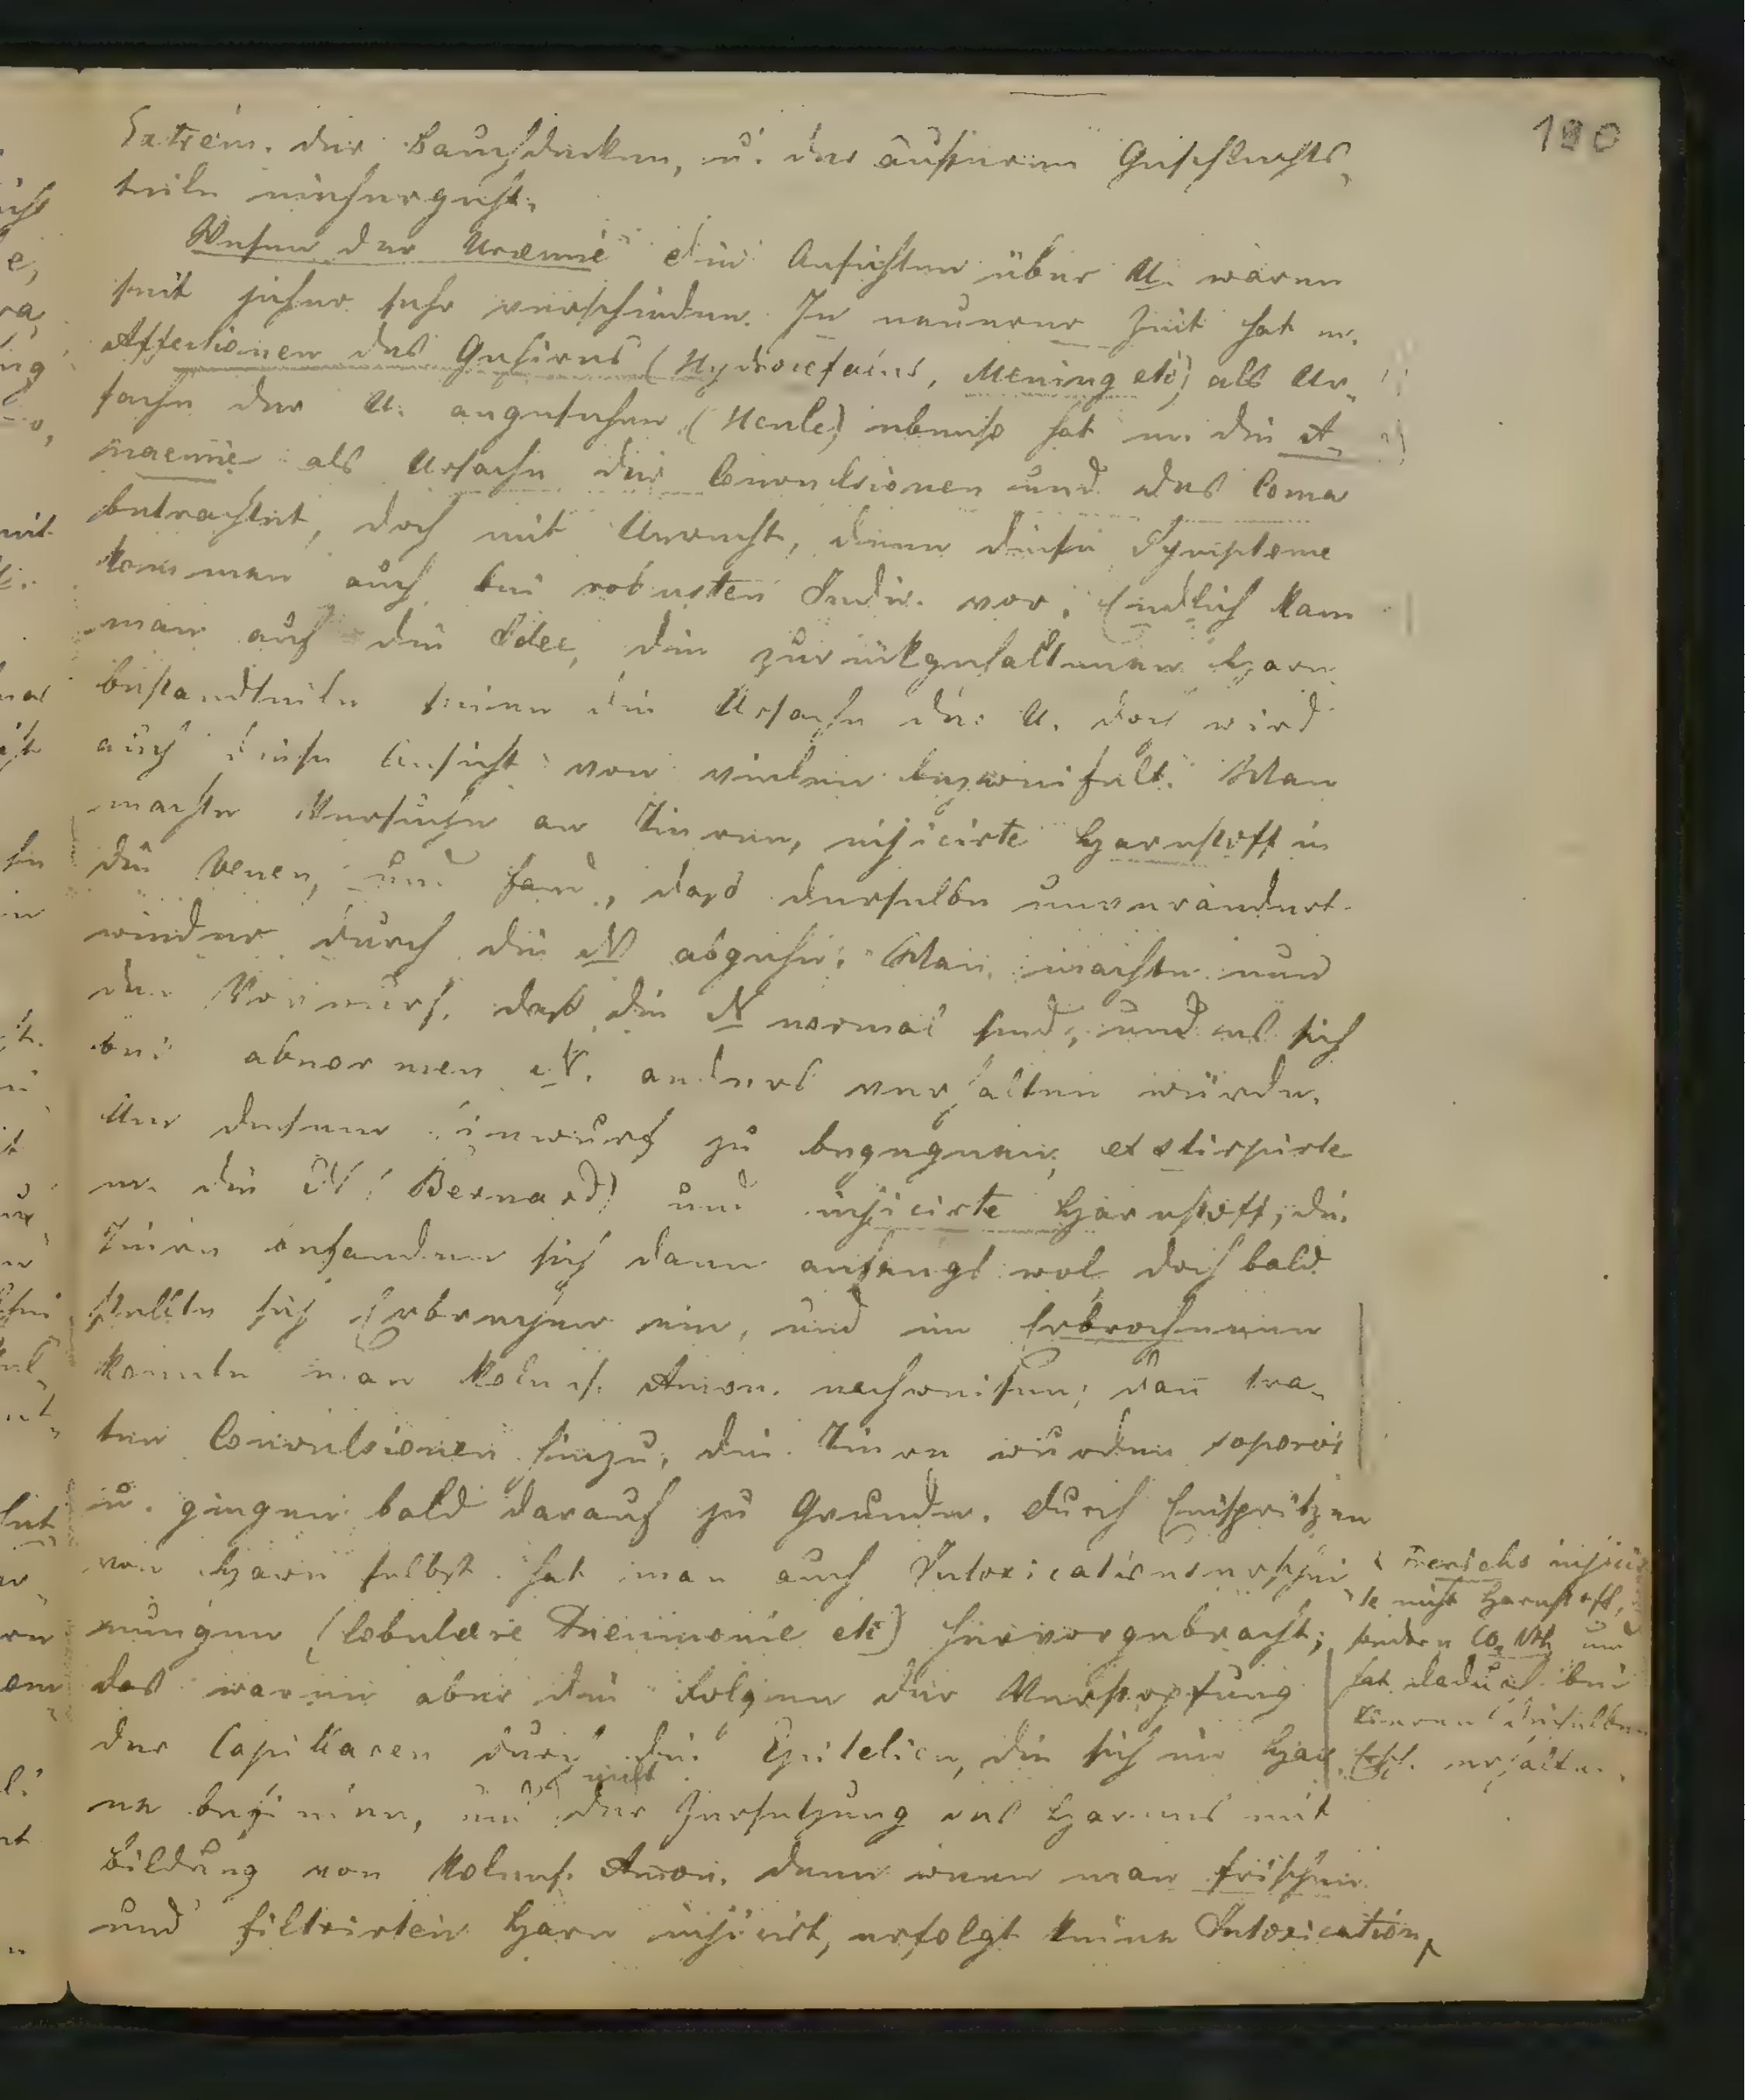 190
Extrem. der Bauchdecken, u. der äußeren Geschlechts-
teile einhergeht.
Wesen der Uraemie die Ansichten über U. waren
seit jeher sehr verschieden. In neuerer Zeit hat m.
Affectionen des Gehirns (Hydrocefalus, Mening etc) als Ur-
sache der U. angesehen (Henle) ebenso hat m. die A-
naemie als Ursache der Convulsionen und des Coma
betrachtet, doch mit Unrecht, denn diese Symptome
kommen auch bei robusten Indiv. vor. Endlich kam
man auf die Idee, die zurückgehaltenen Harn-
bestandteile seien die Ursache der U. doch wird
auch diese Ansicht von vielen bezweifelt. Man
machte Versuche an Tieren, injicirte Harnstoff in
die Venen, und fand, dass derselbe unverändert
wieder durch die N abgehe. Man machte nun
den Vorwurf, daß die N normal sind, und es sich
bei abnormen N. anders verhalten würde.
Um diesem Einwurf zu begegnen, exstirpirte
m. die N (Bernard) und injicirte Harnstoff, die
Tiere befanden sich dann anfangs wol, doch bald
stellte sich Erbrechen ein, und im Erbrochenen
konnte man Kolens. Amon. nachweisen; dan̄ tra-
ten Convulsionen hinzu, die Tiere wurden soporös
u. gingen bald darauf zu Grunde. Durch Einspritzen
von Harn selbst hat man auch Intoxicationserschei-
nungen (lobulaere Pneumonie etc) hervorgebracht;
das waren aber die Folgen der Verstopfung
der Capillaren durch die Epitelien, die sich im Har-
ne befinden, und der Zersetzung des Harnes mit
Bildung von Kolens. Amon. denn wenn man frischen
und filtrirten Harn injicirt, erfolgt keine Intoxication,
Frerichs injicir-
te nicht Harnstoff,
sondern CO₂ NH₃ und
hat dadurch bei
Tieren dieselben
Ersch. erhalten.